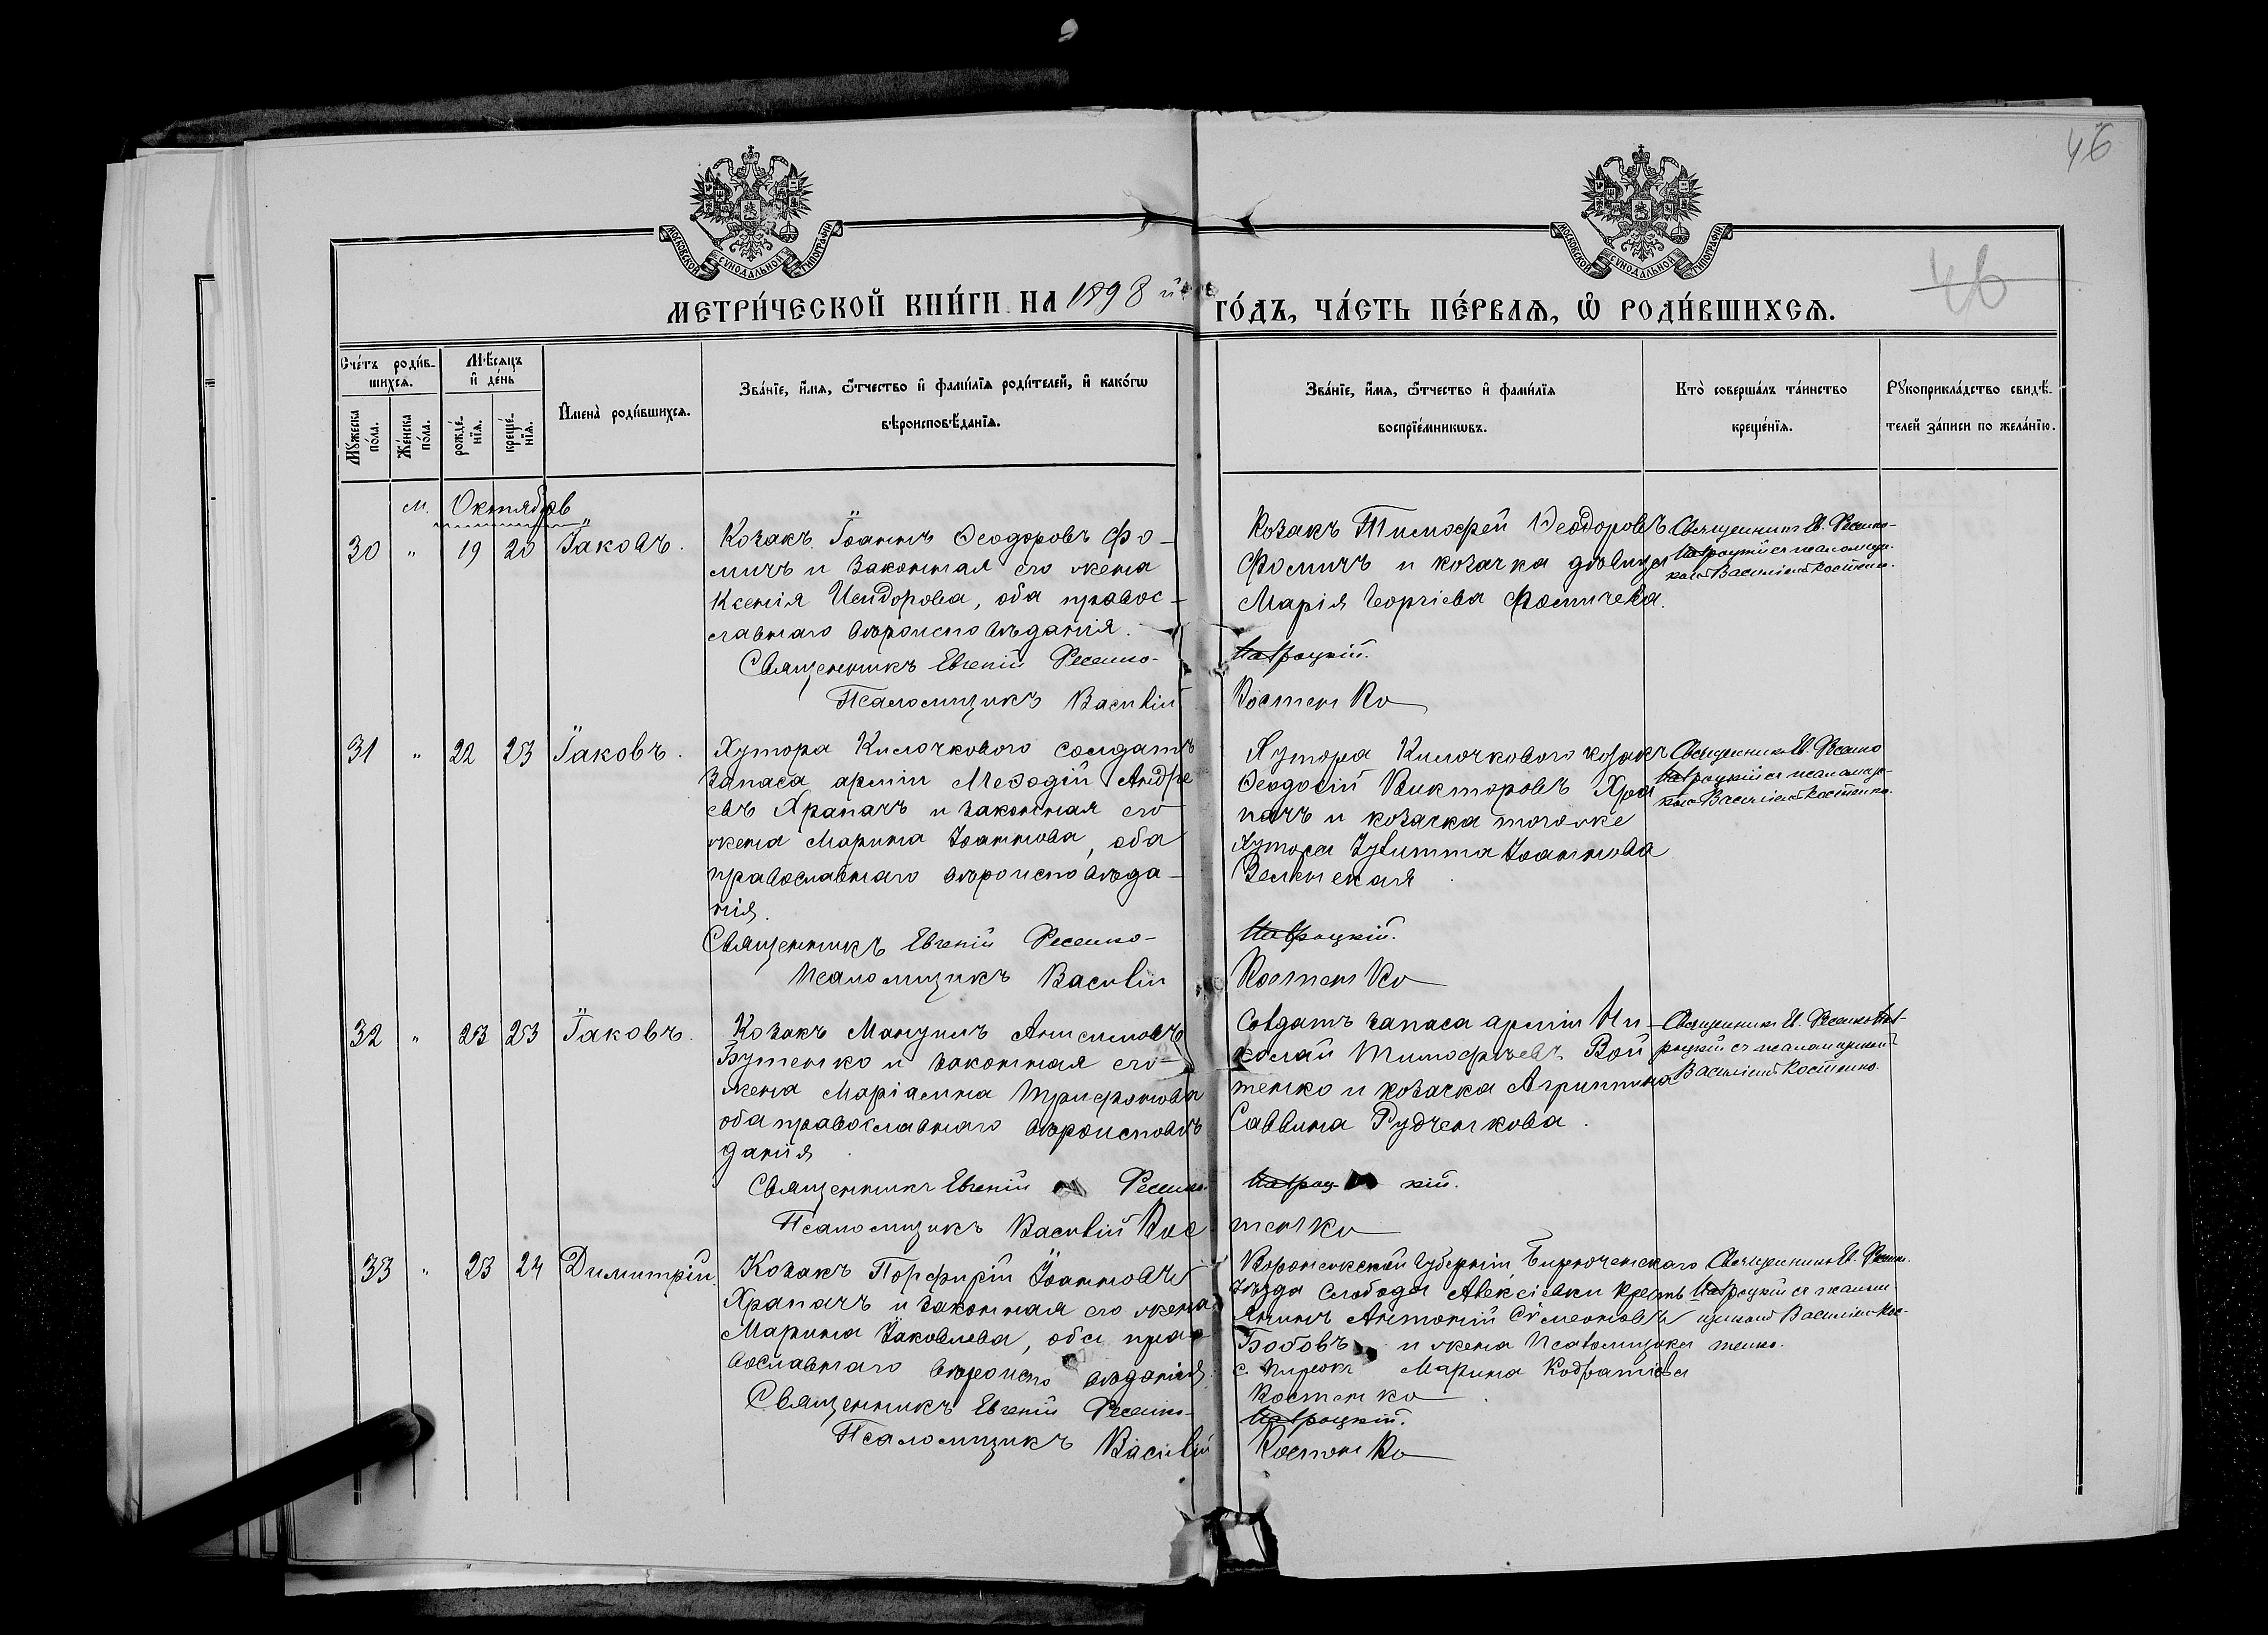 46
МОСКОВСКОЙ СѴНОДАЛЬНОЙ ТИПОГРАФІИ
МОСКОВСКОЙ СѴНОДАЛЬНОЙ ТИПОГРАФІИ
46
МЕТРИ́ЧЕСКОЙ КНИ́ГИ НА 1898 й ГО́ДЪ, ЧА́СТЬ ПЕ́РВАЯ, Ѡ҆ РОДИ́ВШИХСЯ.
Сче́тъ роди́в-
шихся.
Мѣ́сяцъ
и҆ де́нь
Мꙋ́жеска
по́ла.
Же́нска
по́ла.
рожде́-
нїя.
креще́-
нїя.
И҆мена̀ роди́вшихся.
Зва́нїе, и҆́мя, ѻ҆́тчество и҆ фами́лїя роди́телей, и҆ како́гѡ
вѣроисповѣ́данїя.
Зва́нїе, и҆́мя, ѻ҆́тчество и҆ фами́лїя
воспрїе́мникѡвъ.
Кто̀ соверша́лъ та́инство
креще́нїя.
Рꙋкоприкла́дство свидѣ́-
телей за́писи по жела́нїю.
м. Октябрь
30 " 19 20 Їаковъ.
Козакъ Іоаннъ Ѳеодоровъ Фо-
мичъ и законная его жена
Ксенія Исидорова, оба правос-
славнаго вѣроисповѣданія.
Священникъ Евгеній Ресико-
Псаломщикъ Василій
Козакъ Тимофей Ѳеодоровъ
Фомичъ и козачка дѣвица
Марія Георгіева Фомичева.
Навроцкій.
Костенко
Священникъ Е. Ресико-
Навроцкій съ псаломщи-
комъ Василіемъ Костенко.
31 " 22 23 Їаковъ.
Хутора Килочкового солдатъ
запаса арміи Меѳодій Андре
евъ Храпачъ и законная его
жена Марина Іоаннова, оба
православнаго вѣроисповѣда-
нія.
Священникъ Евгеній Ресико-
Псаломщикъ Василій
Хутора Килочкового козакъ
Ѳеодосій Викторовъ Хра
пачъ и козачка того же
хутора Іоаннова
Зеленская
Навроцкій.
Костенко
Священникъ Е. Ресико
Навроцкій съ псаломщи-
комъ Василіемъ Костенко.
32 " 23 23 Їаковъ.
Козакъ Мануилъ Анисимовъ
Бутенко и законная его
жена Маріамна Трифонова
оба православнаго вѣроисповѣ
данія
Священникъ Евгеній Ресико-
Псаломщикъ Василій Кос
Солдатъ запаса арміи Ни-
колай Тимофѣевъ Вой
тенко и козачка Агриппина
Саввина Рудченкова.
Навроцкій.
тенко
Священникъ Е. Ресико Нав-
роцкій съ псаломщикомъ
Василіемъ Костенко.
33 " 23 24 Димитрій.
Козакъ Порфирій Іоанновъ
Храпачъ и законная его жена
Марина Іаковлева, оба пра-
вославнаго вѣроисповѣданія.
Священникъ Евгеній Ресико-
Псаломщикъ Василій
Воронежской губерніи Бирюченскаго
уѣзда слободы Алексіевки крестъ
янинъ Антоній Симеоновъ
Бобовъ и жена псаломщика
с. Марина Кодратіева
Костенко
Навроцкій.
Костенко
Священникъ Е. Ресико-
Навроцкій съ псалом-
щикомъ Василіемъ Кос-
тенко.